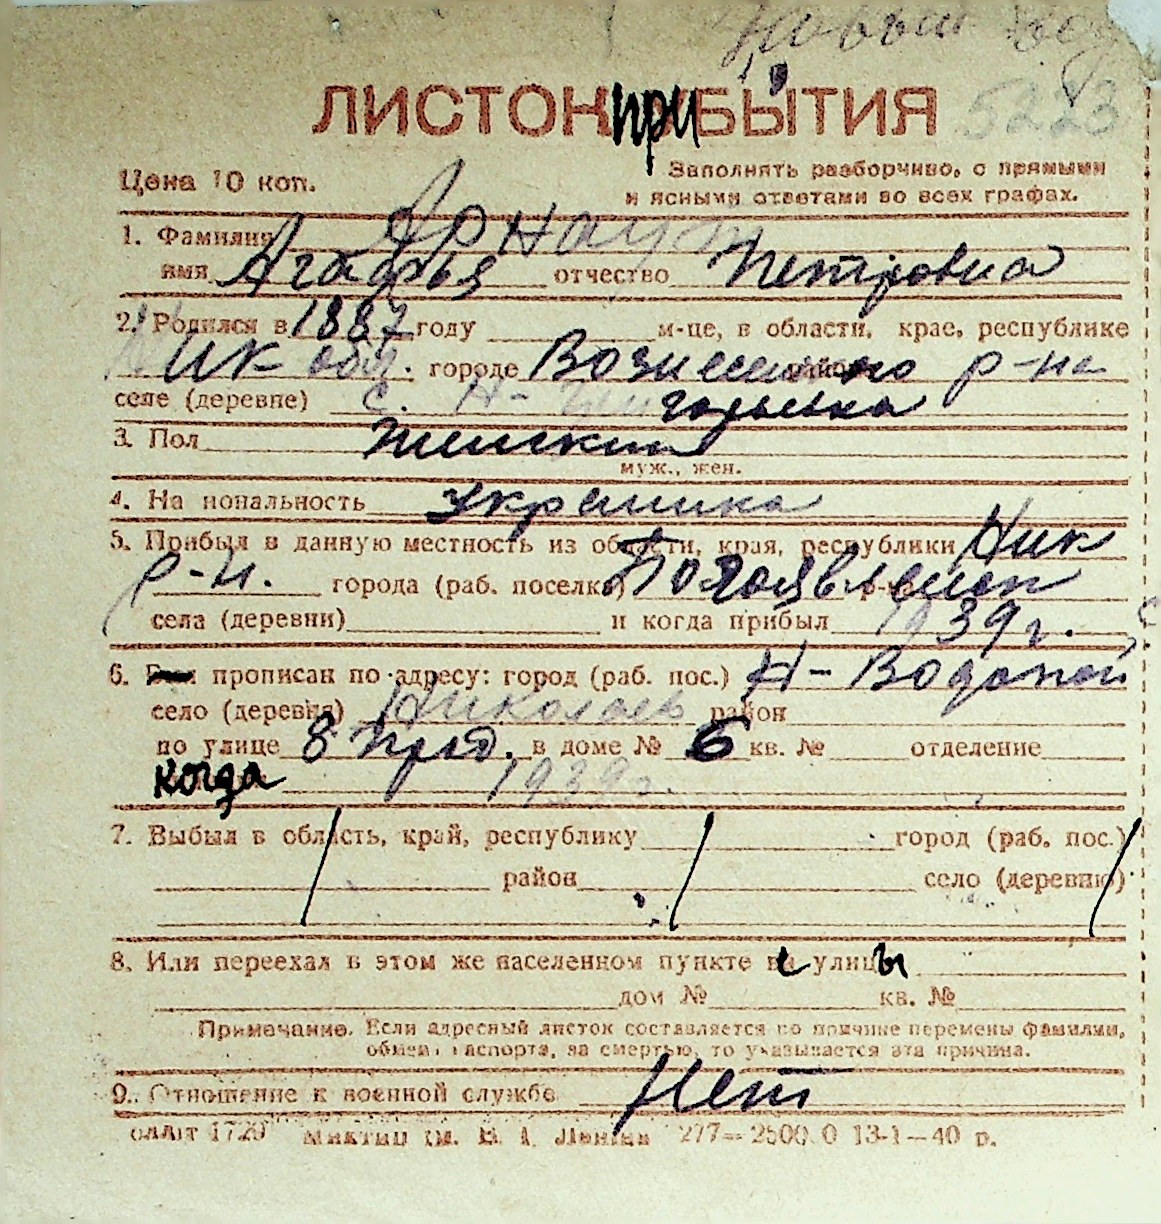 Новый
5223
ЛИСТОК ПРИБЫТИЯ
Цена 10 коп.
Заполнять разборчиво, с прямыми
и ясными ответами во всех графах.
1. Фамилия Арнаут
имя Агафья отчество Петровна
2. Родился в 1887 году м-це, в области, крае, республике
Ник обл. городе Вознесенского р-на
селе (деревне) с. Н-Григорьевка
3. Пол Женский
муж., жен.
4. Национальность украинка
5. Прибыл в данную местность из области, края, республики Ник
р-н. города (раб. поселка)
села (деревни) и когда прибыл 1939 г.
6. прописан по адресу: город (раб. пос.) Н-Водопой
село (деревня) Николаев район
по улице 8 прод. в доме № 6 кв. № отделение
когда 1939 г.
7. Выбыл в область, край, республику город (раб. пос.)
район село (деревню)
8. Или переехал в этом же населенном пункте с улицы
дом № кв. №
Примечание. Если адресный листок составляется по причине перемены фамилии,
обмена паспорта, за смертью, то указывается эта причина.
9. Отношение к военной службе Нет
277—2500.0 13-1—40 р.